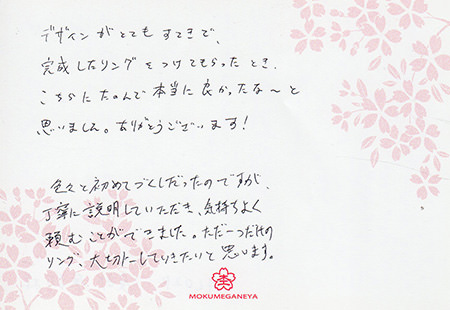 デザインがとてもすてきで、
完成したリングをつけてもらったとき、
こちらにたのんで本当に良かったな〜と
思いました。ありがとうございます!
色々と初めてづくしだったのですが、
丁寧に説明していただき、気持ちよく
頼むことができました。ただ一つだけの
リング、大切にしていきたいと思います。
MOKUMEGANEYA